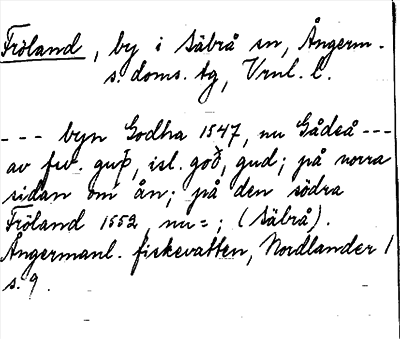 Fröland, by i Säbrå sn, Ångerm.
s. doms. tg, Vrnl. l.
--- byn Godha 1547, nu Gådeå ---
av fsv. guþ, isl. goð, gud; på norra
sidan om ån; på den södra
Fröland 1552, nu =; (Säbrå).
Ångermanl. fiskevatten, Nordlander 1
s. 9.